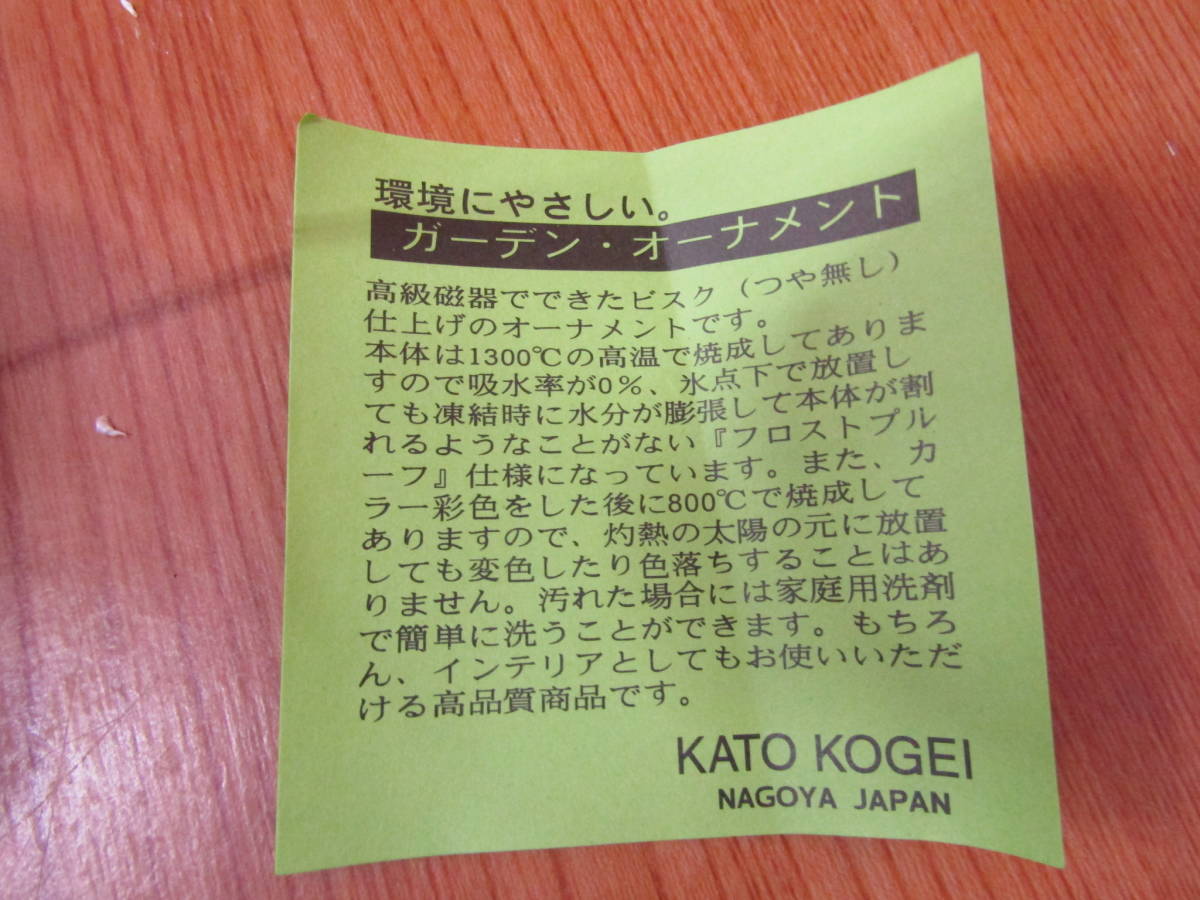 環境にやさしい。
ガーデン・オーナメント
高級磁器でできたビスク（つや無し）
仕上げのオーナメントです。
本体は1300℃の高温で焼成してありま
すので吸水率が0％、氷点下で放置し
ても凍結時に水分が膨張して本体が割
れるようなことがない『フロストプル
ーフ』仕様になっています。また、カ
ラー彩色をした後に800℃で焼成して
ありますので、灼熱の太陽の元に放置
しても変色したり色落ちすることはあ
りません。汚れた場合には家庭用洗剤
で簡単に洗うことができます。もちろ
ん、インテリアとしてもお使いいただ
ける高品質商品です。
KATO KOGEI
NAGOYA JAPAN